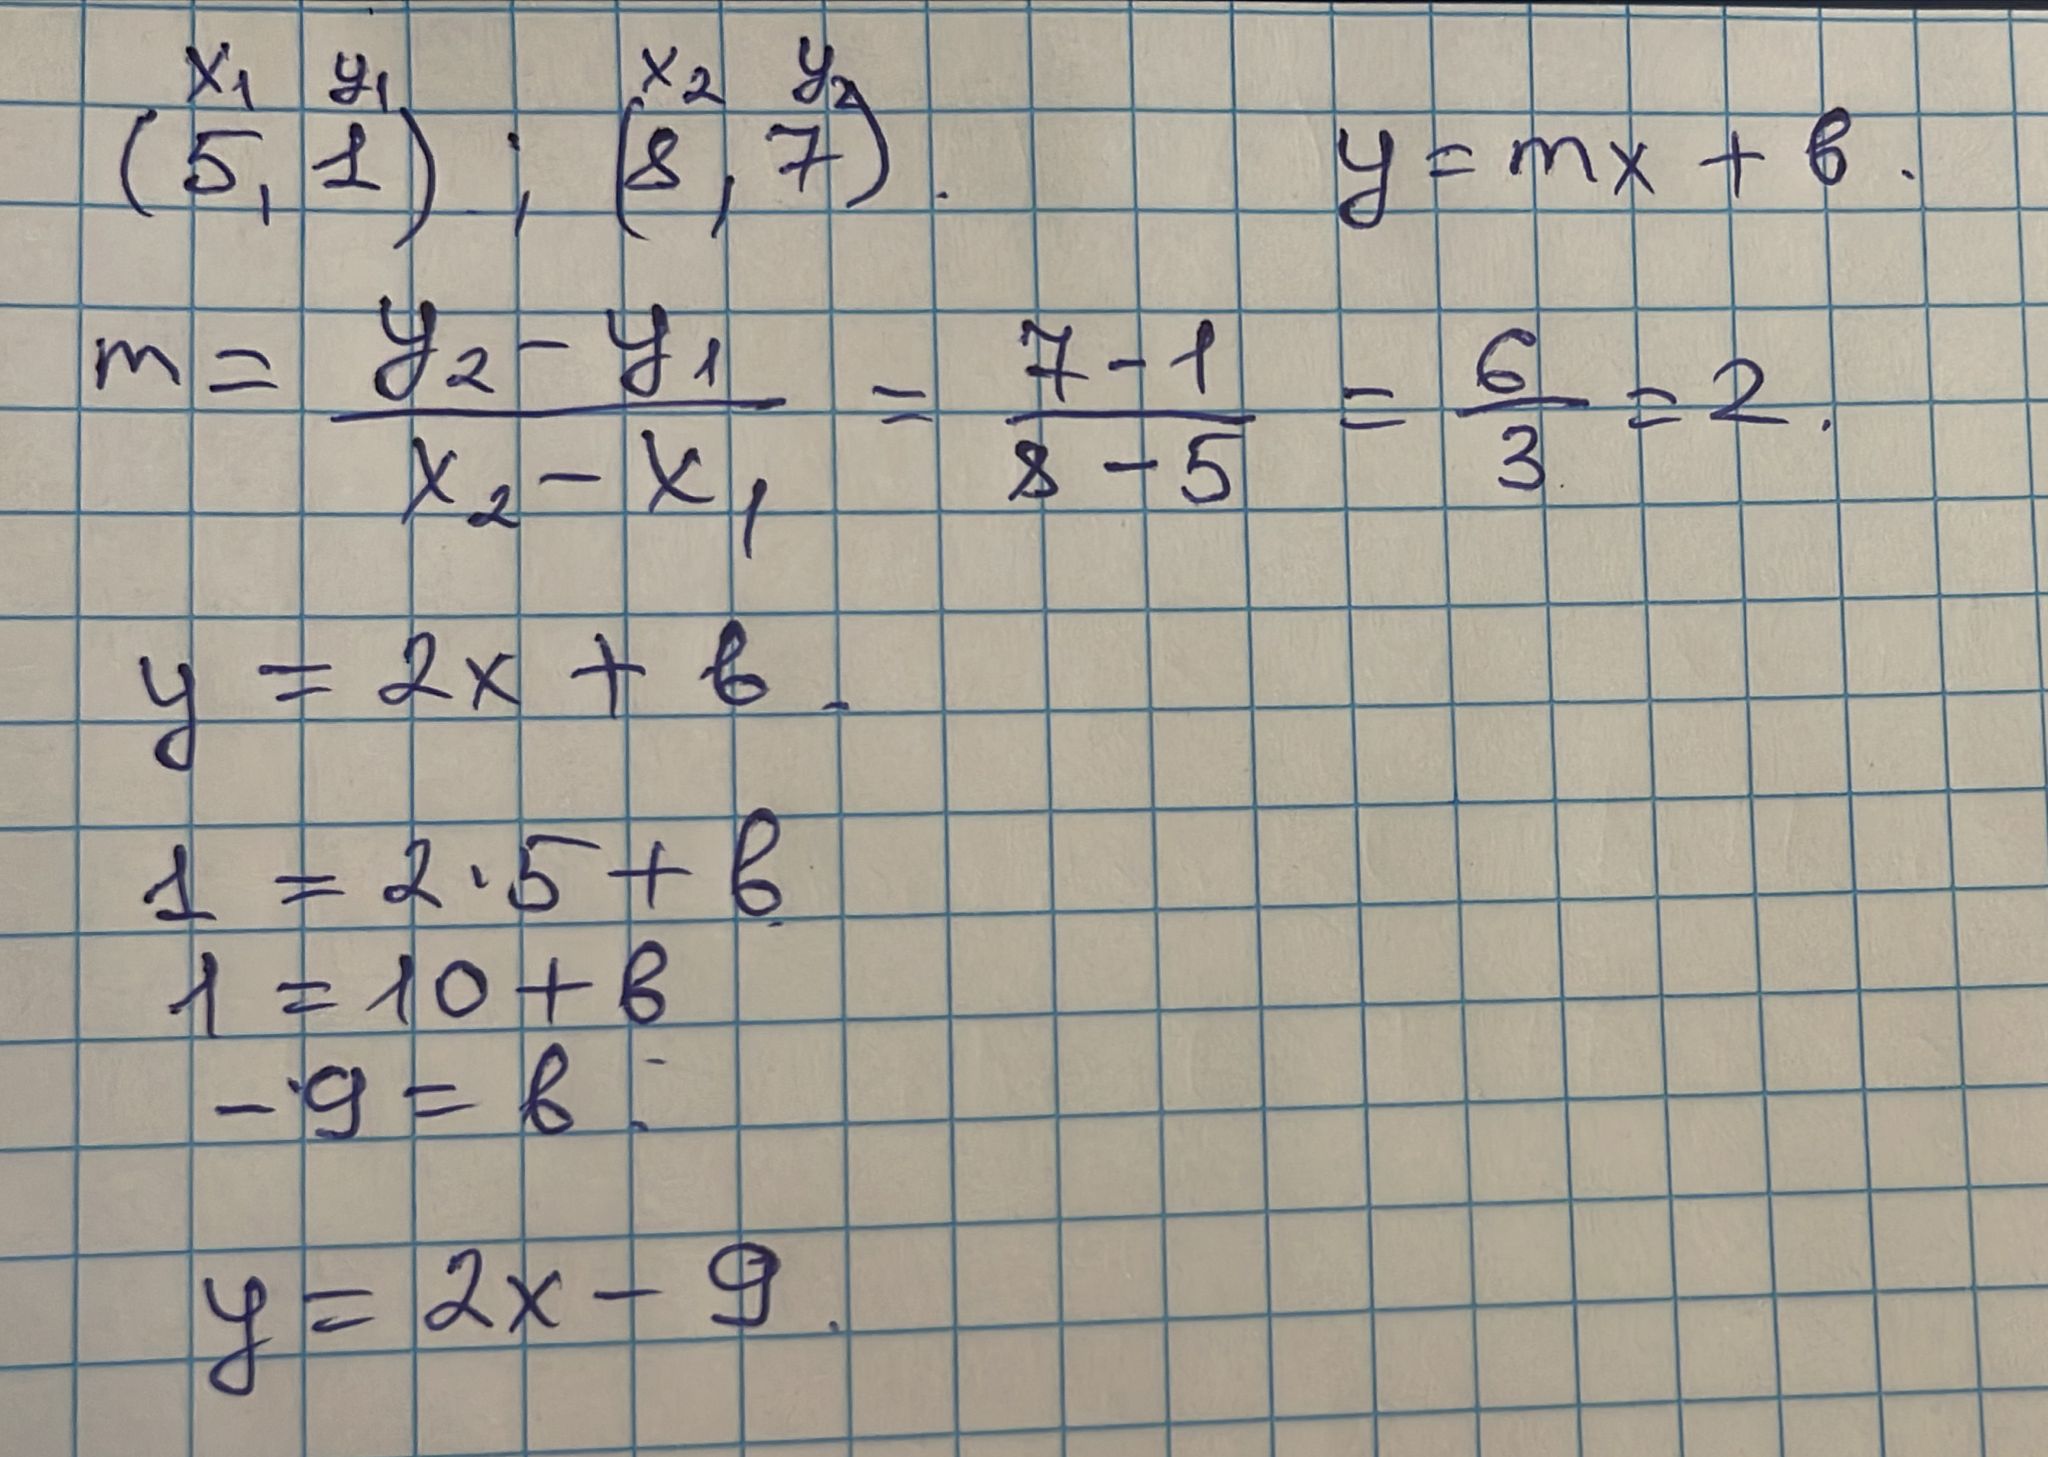 x₁ y₁ x₂ y₂
(5, 1) ; (8, 7). y = mx + b.
m = (y₂ - y₁)/(x₂ - x₁) = (7 - 1)/(8 - 5) = 6/3 = 2.
y = 2x + b.
1 = 2·5 + b
1 = 10 + b
-9 = b.
y = 2x - 9.